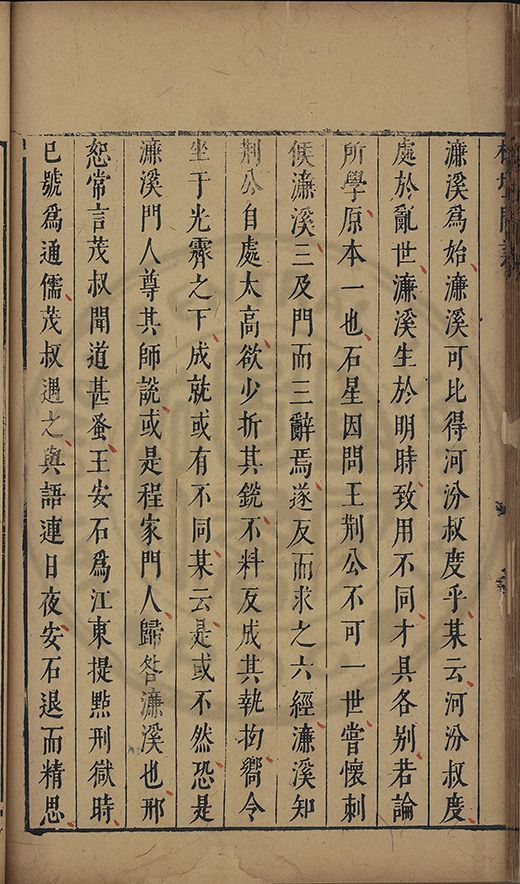 濂溪爲始濂溪可比得河汾叔度乎某云河汾叔度
處於亂世濂溪生於明時致用不同才具各別若論
所學原本一也石星因問王荊公不可一世嘗懷刺
候濂溪三及門而三辭焉遂反而求之六經濂溪知
荆公自處太高欲少折其銳不料反成其執拗嚮令
坐于光霽之下成就或有不同某云是或不然恐是
濂溪門人尊其師說或是程家門人歸咎濂溪也邢
恕常言茂叔聞道甚蚤王安石爲江東提㸃刑獄時
已號爲通儒茂叔遇之與語連日夜安石退而精思